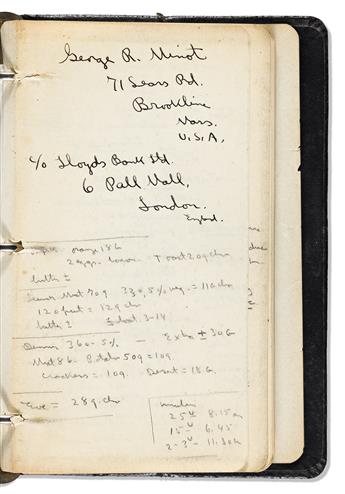 George R. Minot
71 Sears Rd.
Brookline
Mass.
U.S.A.
c/o Lloyds Bank Ltd.
6 Pall Mall,
London.
England.
orange 186
2 eggs - bacon Toast 20g cho
butter ±
Meat 70g 330, 5% veg. = 11g cho
120 fruit = 12g cho
butter 2
Dinner 360 - 5% - Extra ± 306
Meat 86. Potato 50g = 10g.
Crackers = 10g. Desert = 18.6
Eve = 28g. cho
insulin
25 u 8.15 am
15 u 6.45
2-3 u - 11.30